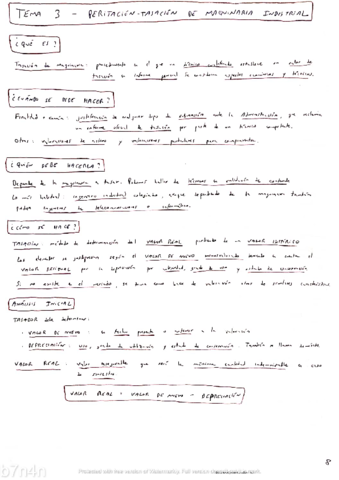 TEMA 3 - PERITACIÓN-TASACIÓN DE MAQUINARIA INDUSTRIAL
¿QUÉ ES?
Tasación de maquinaria: procedimiento en el que un técnico cualificado establece un valor de
tasación en informe pericial la aspectos económicos y técnicos.
¿CUÁNDO SE DEBE HACER?
Finalidad + común: justificación de cualquier tipo de ante la Administración, que
un informe oficial de tasación por parte de un técnico competente.
Otros: de activos y particulares para compraventas.
¿QUIÉN DEBE HACERLA?
Depende de la maquinaria a tasar. Podemos hablar de técnicos en
Lo más habitual: ingeniero industrial colegiado, aunque dependiendo de la maquinaria también
ingenieros de telecomunicaciones o informática.
¿CÓMO SE HACE?
TASACIÓN: método de determinación del VALOR REAL partiendo de un VALOR
Los elementos se según el VALOR DE NUEVO tomando en cuenta el
VALOR RESIDUAL por la depreciación por antigüedad, grado de uso y estado de conservación
Si no existe en el mercado, se toma como base de valoración otros de similares características
ANÁLISIS INICIAL
TASADOR debe determinar:
- VALOR DE NUEVO: en fecha presente o anterior a la valoración
- DEPRECIACIÓN: uso, grado de utilización y estado de conservación. También se llama demérito.
VALOR REAL: valor asegurable que será la máxima cantidad indemnizable en caso
de siniestro
VALOR REAL = VALOR DE NUEVO - DEPRECIACIÓN
8
b7n4n